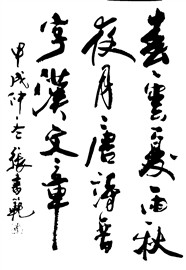 春雲夏雨秋
夜月唐詩晉
字漢文章
甲戌仲冬張書範